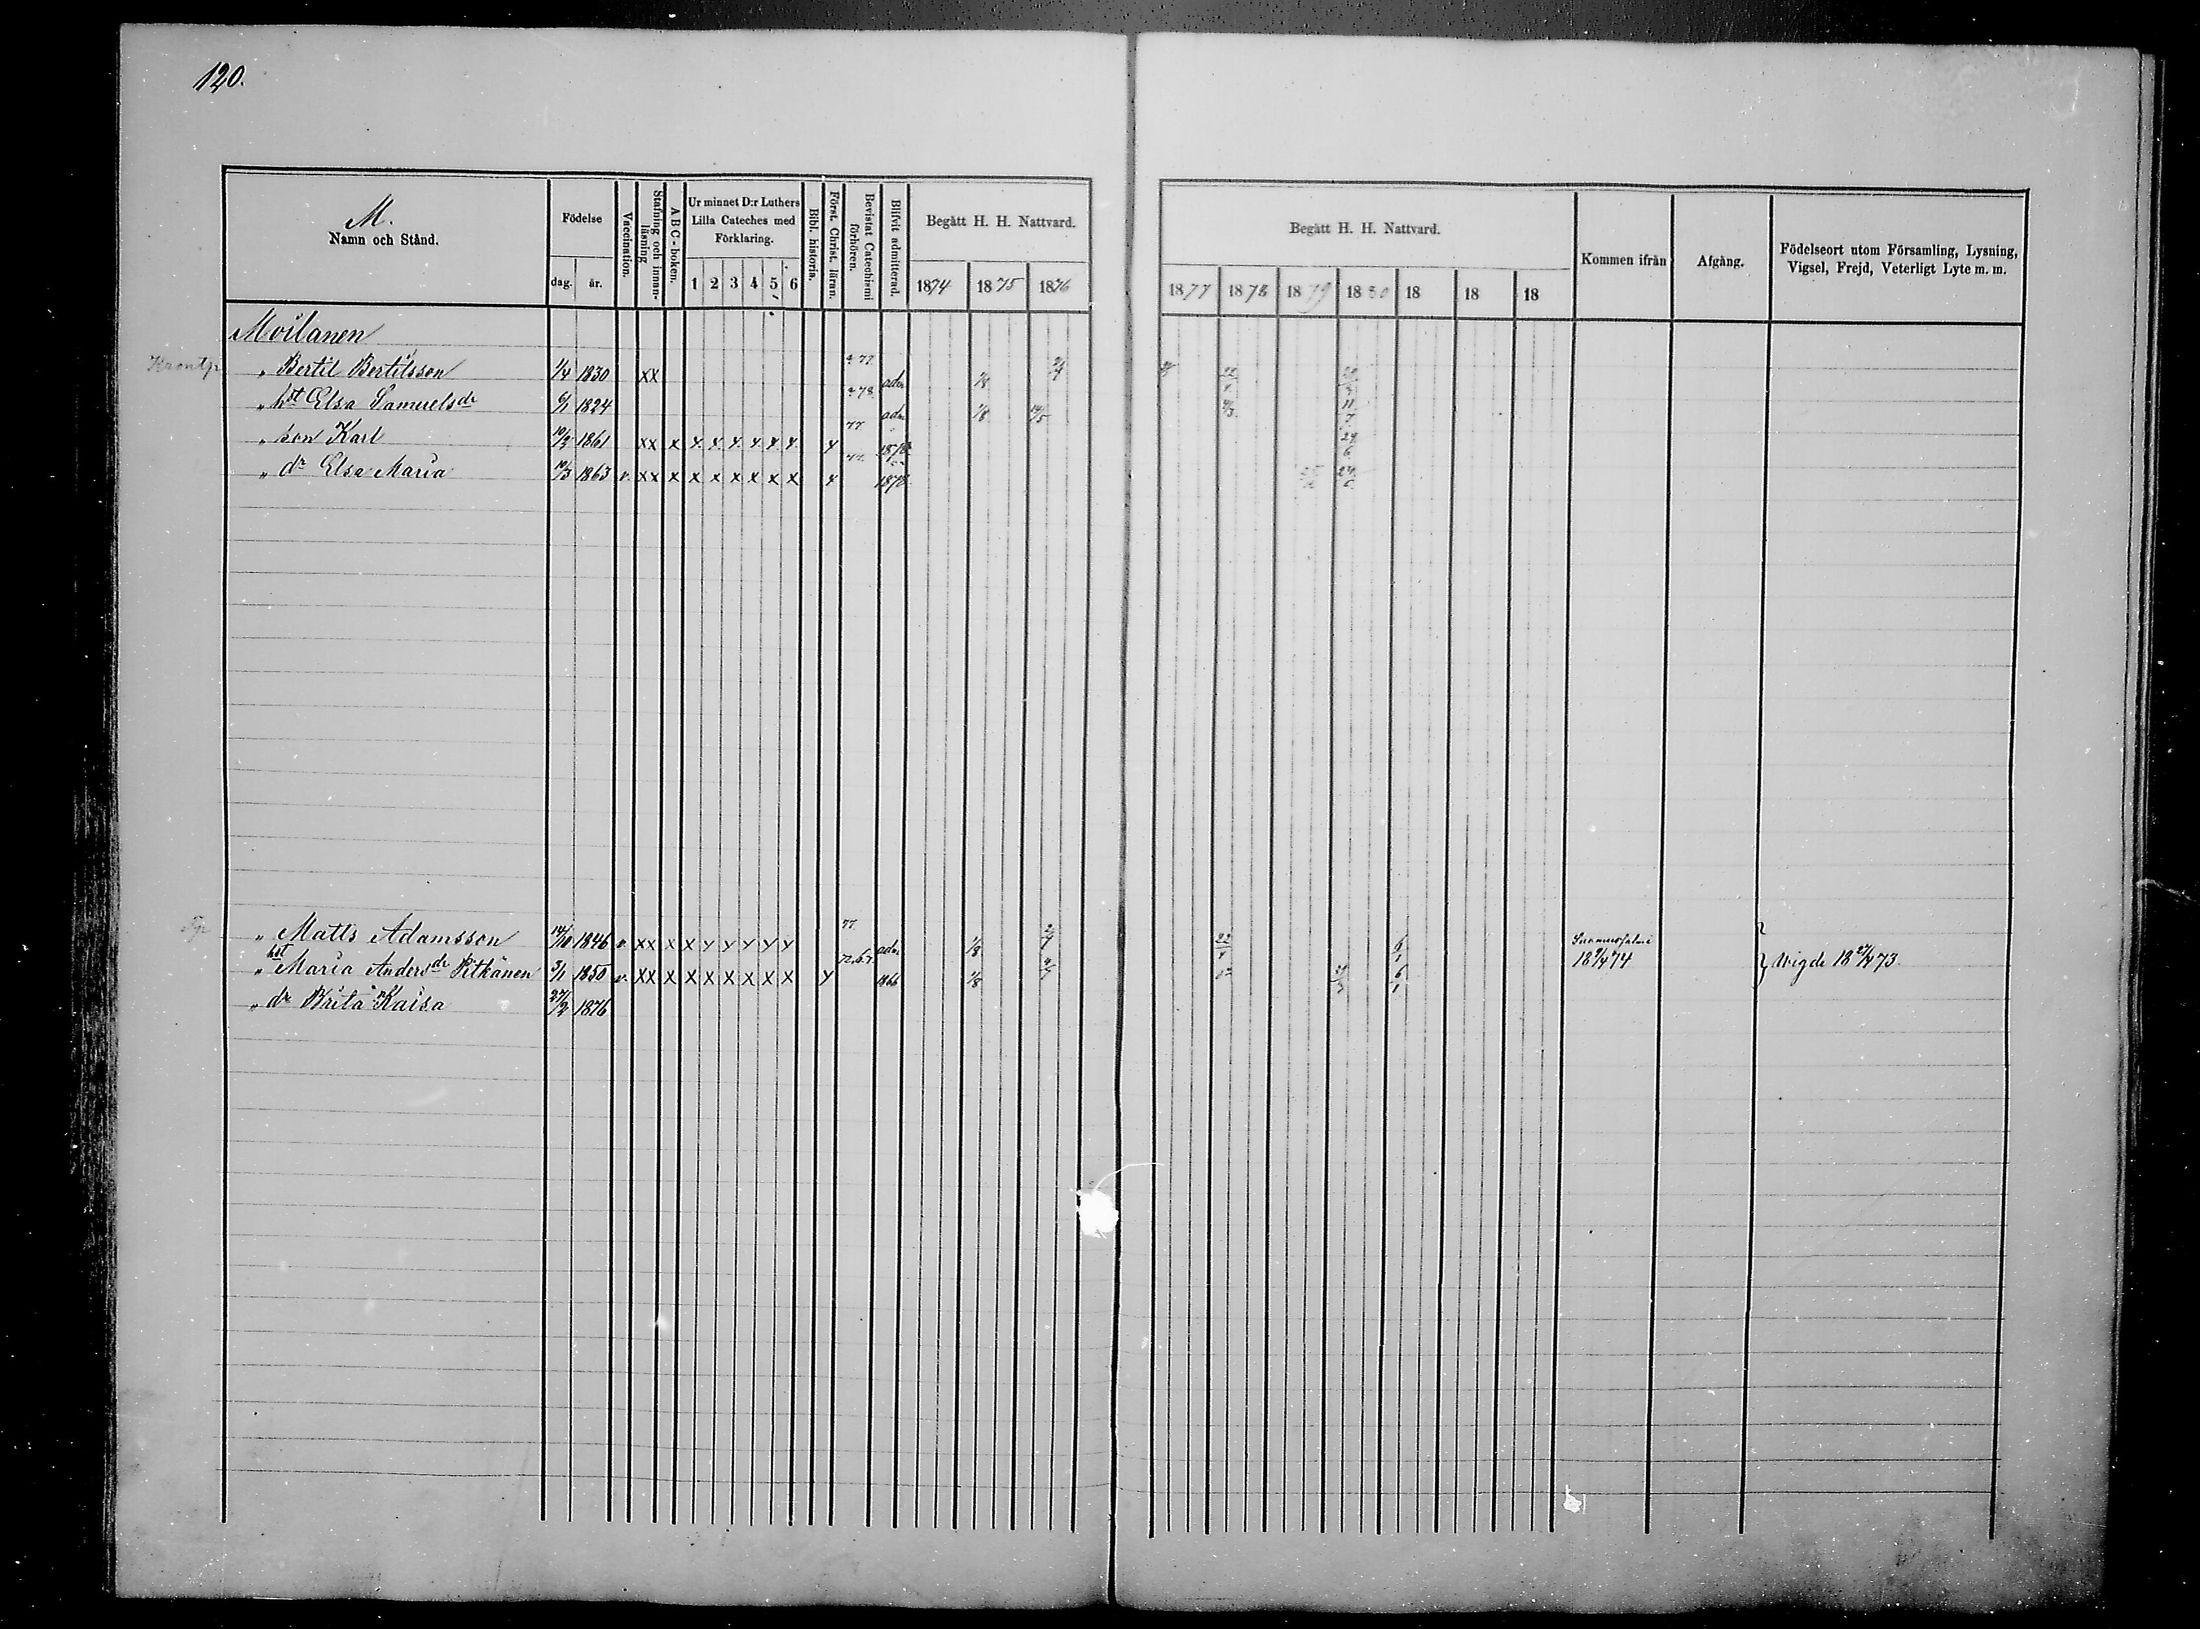 120.
M.
Namn och Stånd.
Födelse
dag. år.
Vaccination.
Stafning och innanläsning
ABC-boken.
Ur minnet D:r Luthers Lilla Cateches med Förklaring.
1 2 3 4 5 6
Bibl. historia.
Först. Christ. läran.
Bevistat Catechismi förhören.
Blifvit admitterad.
Begått H. H. Nattvard.
1874 1875 1876
Begått H. H. Nattvard.
1877 1878 1879 1880 18 18 18
Kommen ifrån
Afgång.
Födelseort utom Församling, Lysning, Vigsel, Frejd, Veterligt Lyte m. m.
Moilanen
" Bertil Bertilsson 1/4 1830 xx 77 adm 1/8
" hst Elsa Samuelsdr 6/1 1824 78 adm 1/8
" son Karl 10/2 1861 xx x x x x x x x x 77 1878
" dr Elsa Maria 10/3 1863 v. xx x x x x x x x x 1878
" Matts Adamsson 14/10 1846 v. xx x x x x x x x 77 adm 1/8 Suomussalmi 18 74
" hst Maria Andersdr Pitkänen 3/1 1850 v. xx x x x x x x x x 1866 1/8 Vigde 18 27/4 73.
" dr Brita Kaisa 27/2 1876